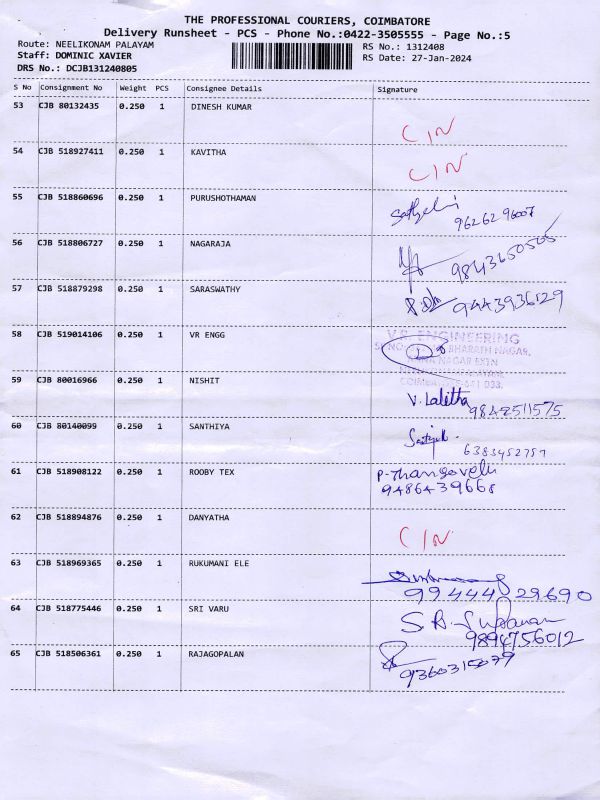 THE PROFESSIONAL COURIERS, COIMBATORE
Delivery Runsheet - PCS - Phone No.:0422-3505555 - Page No.:5
Route: NEELIKONAM PALAYAM RS No.: 1312408
Staff: DOMINIC XAVIER RS Date: 27-Jan-2024
DRS No.: DCJB131240805
S No Consignment No Weight PCS Consignee Details Signature
53 CJB 80132435 0.250 1 DINESH KUMAR
C/N
54 CJB 518927411 0.250 1 KAVITHA
C/N
55 CJB 518860696 0.250 1 PURUSHOTHAMAN
9626296007
56 CJB 518806727 0.250 1 NAGARAJA
9843650505
57 CJB 518879298 0.250 1 SARASWATHY
9443936129
58 CJB 519014106 0.250 1 VR ENGG
V.R. ENGINEERING
BHARATH NAGAR,
NAGAR EXTN
59 CJB 80016966 0.250 1 NISHIT
V. Lalitha 9842511575
60 CJB 80140099 0.250 1 SANTHIYA
6383452757
61 CJB 518908122 0.250 1 ROOBY TEX
P. Thangavelu
9486439668
62 CJB 518894876 0.250 1 DANYATHA
C/N
63 CJB 518969365 0.250 1 RUKUMANI ELE
99444 29690
64 CJB 518775446 0.250 1 SRI VARU
9894756012
65 CJB 518506361 0.250 1 RAJAGOPALAN
9360315079